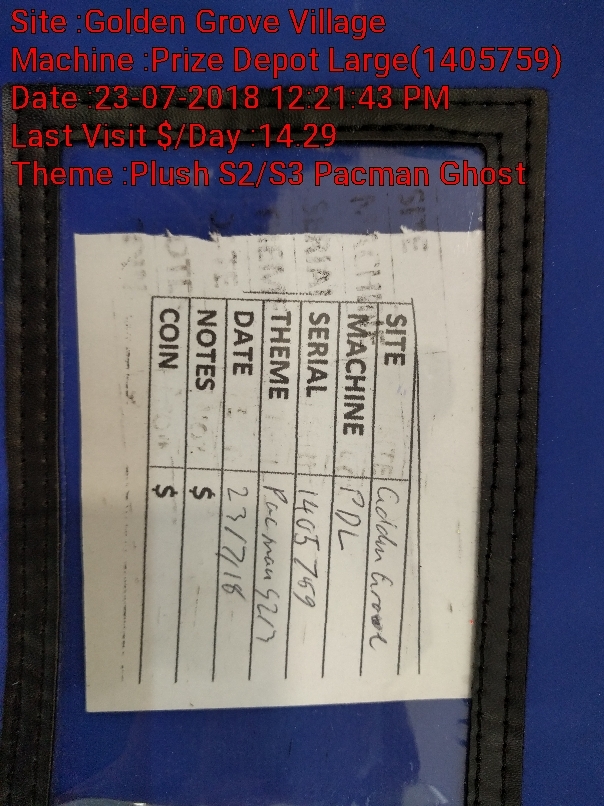 Site :Golden Grove Village
Machine :Prize Depot Large(1405759)
Date :23-07-2018 12:21:43 PM
Last Visit $/Day :14.29
Theme :Plush S2/S3 Pacman Ghost
SITE Golden Grove
MACHINE PDL
SERIAL 1405759
THEME Pacman
DATE 23/7/18
NOTES $
COIN $